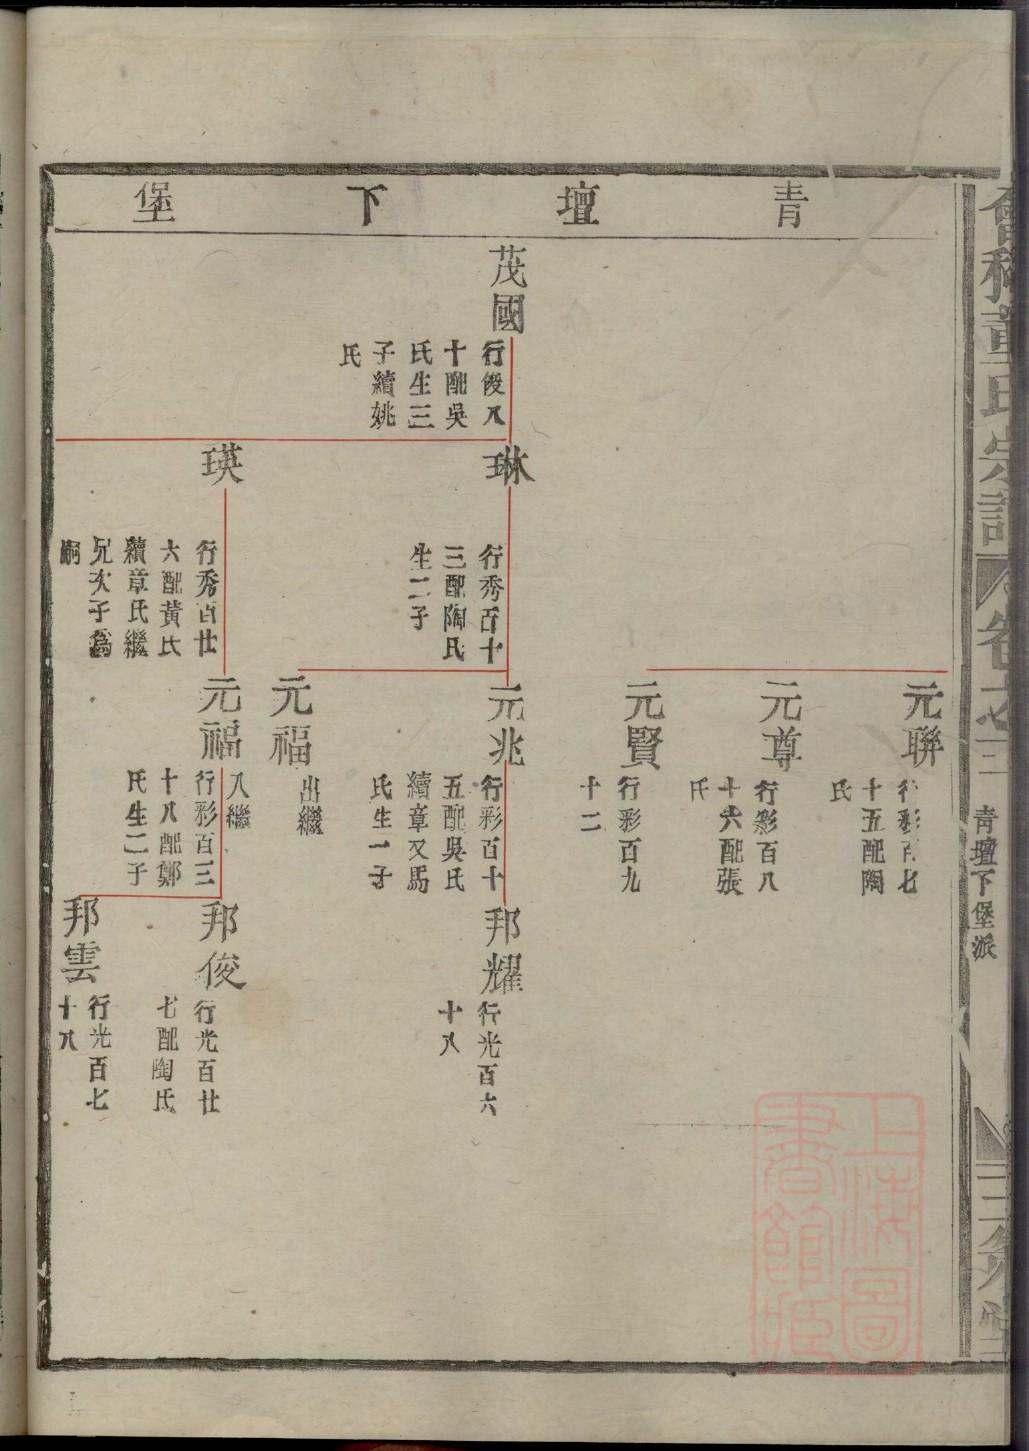 會稽董氏宗譜
卷之三
青壇下堡派
三策堂
青壇下堡
茂國
行俊八
十配吳
氏生三
子續姚
氏
琳
行秀百十
三配陶氏
生二子
瑛
行秀百廿
六配黃氏
續章氏繼
兄次子為
嗣
元聯
行彩百七
十五配陶
氏
元尊
行彩百八
十六配張
氏
元賢
行彩百九
十二
元兆
行彩百十
五配吳氏
續章又馬
氏生一子
元福
出繼
元福
入繼
行彩百三
十八配鄭
氏生二子
邦耀
行光百六
十八
邦俊
行光百廿
七配陶氏
邦雲
行光百七
十八
上海圖
書館藏